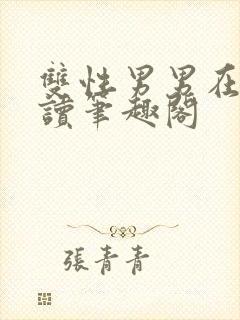 雙性男男在
讀筆趣閣
張青青